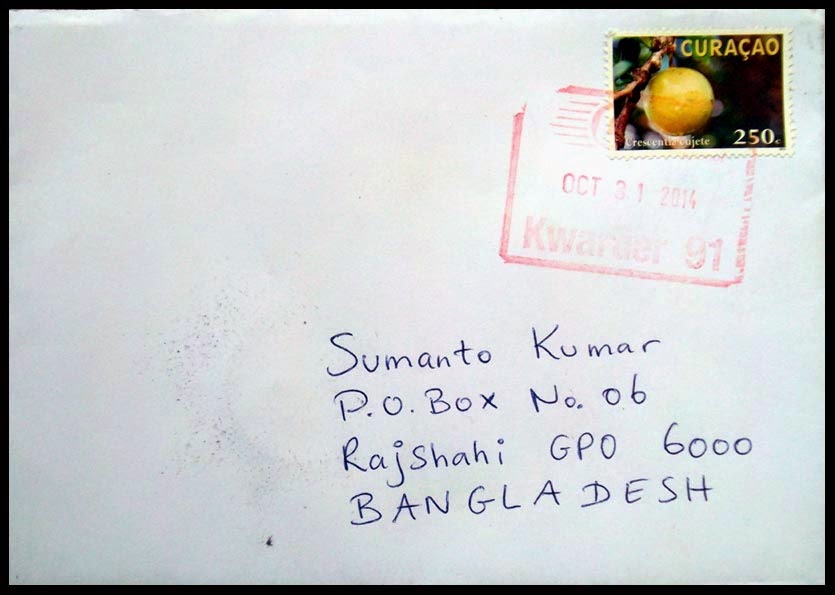 CURAÇAO
Crescentia cujete 250c
OCT 31 2014
Kwartier 91
Sumanto Kumar
P.O. Box No. 06
Rajshahi GPO 6000
BANGLADESH